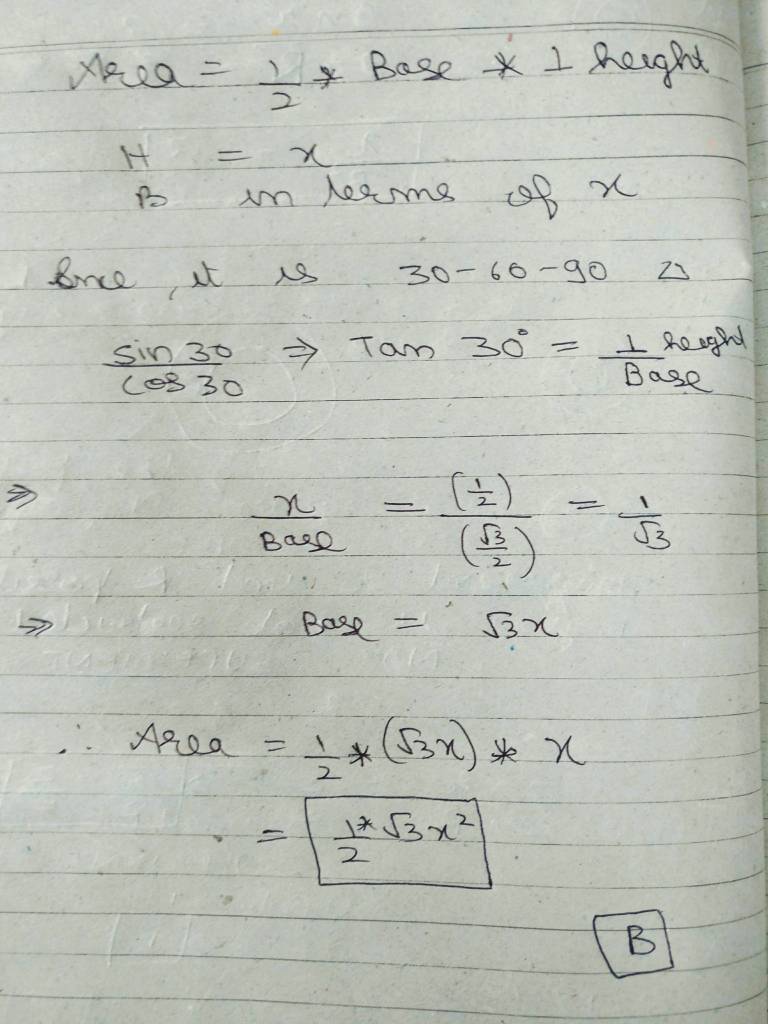 Area = 1/2 * Base * ⊥ height
H = x
B in terms of x
Since, it is 30-60-90 △
sin 30/cos 30 ⇒ Tan 30° = ⊥ height/Base
⇒ x/Base = (1/2)/(√3/2) = 1/√3
⇒ Base = √3x
∴ Area = 1/2 * (√3x) * x
= 1/2 * √3x²
B